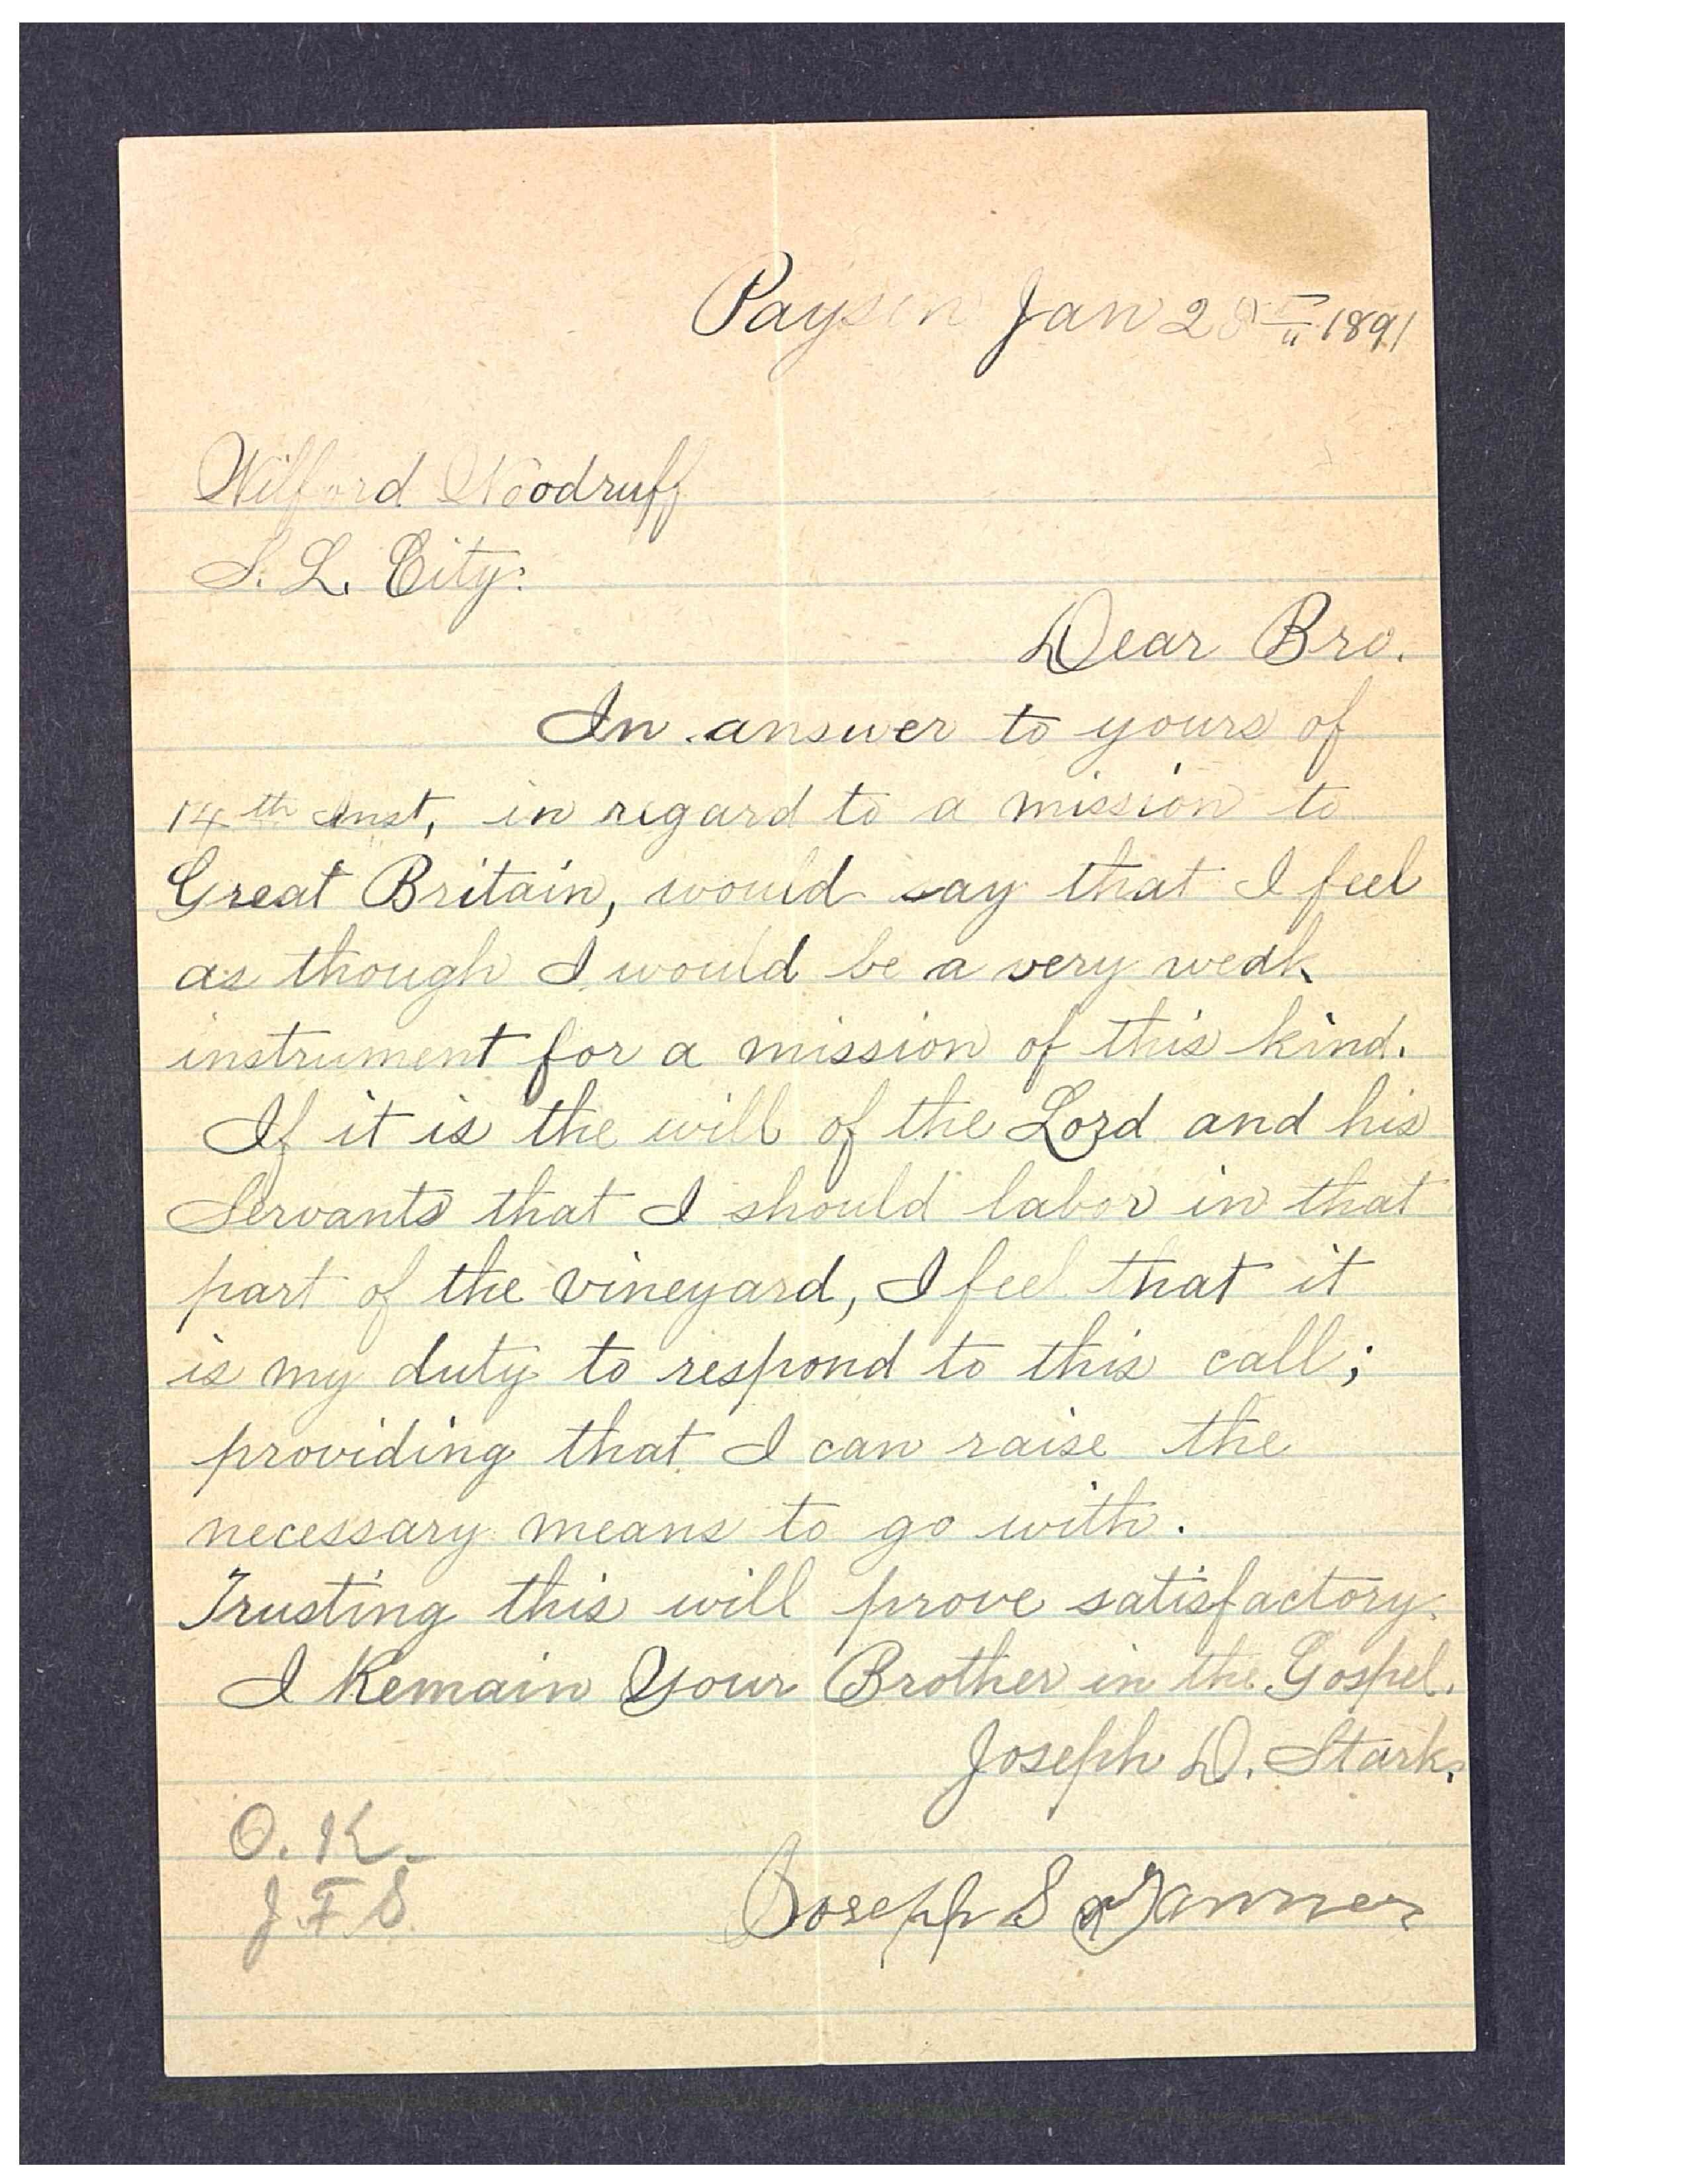 Payson Jan 28th 1891
Wilford Woodruff
S. L. City.
Dear Bro.
In answer to yours of
14th Inst, in regard to a mission to
Great Britain, would say that I feel
as though I would be a very weak
instrument for a mission of this kind.
If it is the will of the Lord and his
Servants that I should labor in that
part of the vineyard, I feel that it
is my duty to respond to this call;
providing that I can raise the
necessary means to go with.
Trusting this will prove satisfactory.
I Remain Your Brother in the Gospel.
Joseph D. Stark.
O. K.
J. F. S.
Joseph S Tanner